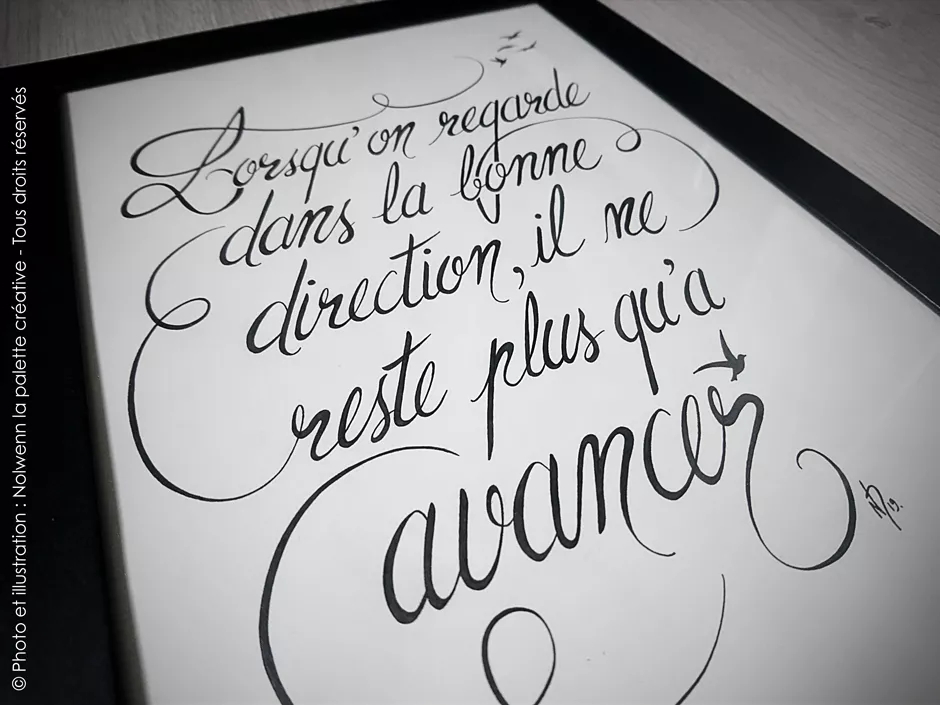 Lorsqu'on regarde
dans la bonne
direction, il ne
reste plus qu'a
avancer
ND 19.
© Photo et illustration : Nolwenn la palette créative - Tous droits réservés